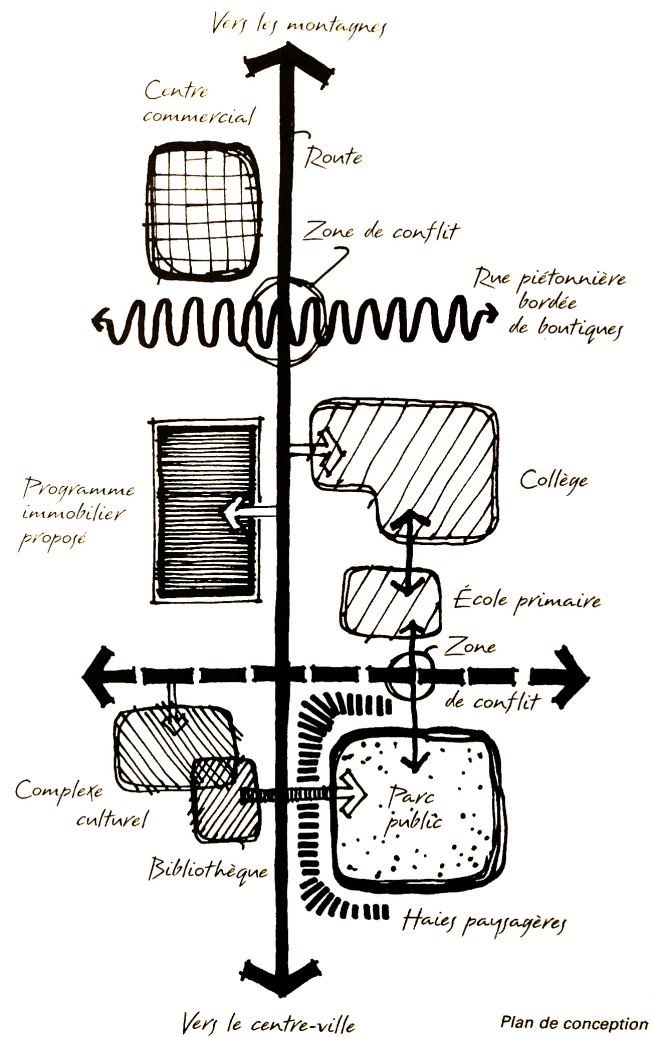 Vers les montagnes
Centre
commercial
Route
Zone de conflit
Rue piétonnière
bordée
de boutiques
Programme
immobilier
proposé
Collège
École primaire
Zone
de conflit
Complexe
culturel
Parc
public
Bibliothèque
Haies paysagères
Vers le centre-ville
Plan de conception